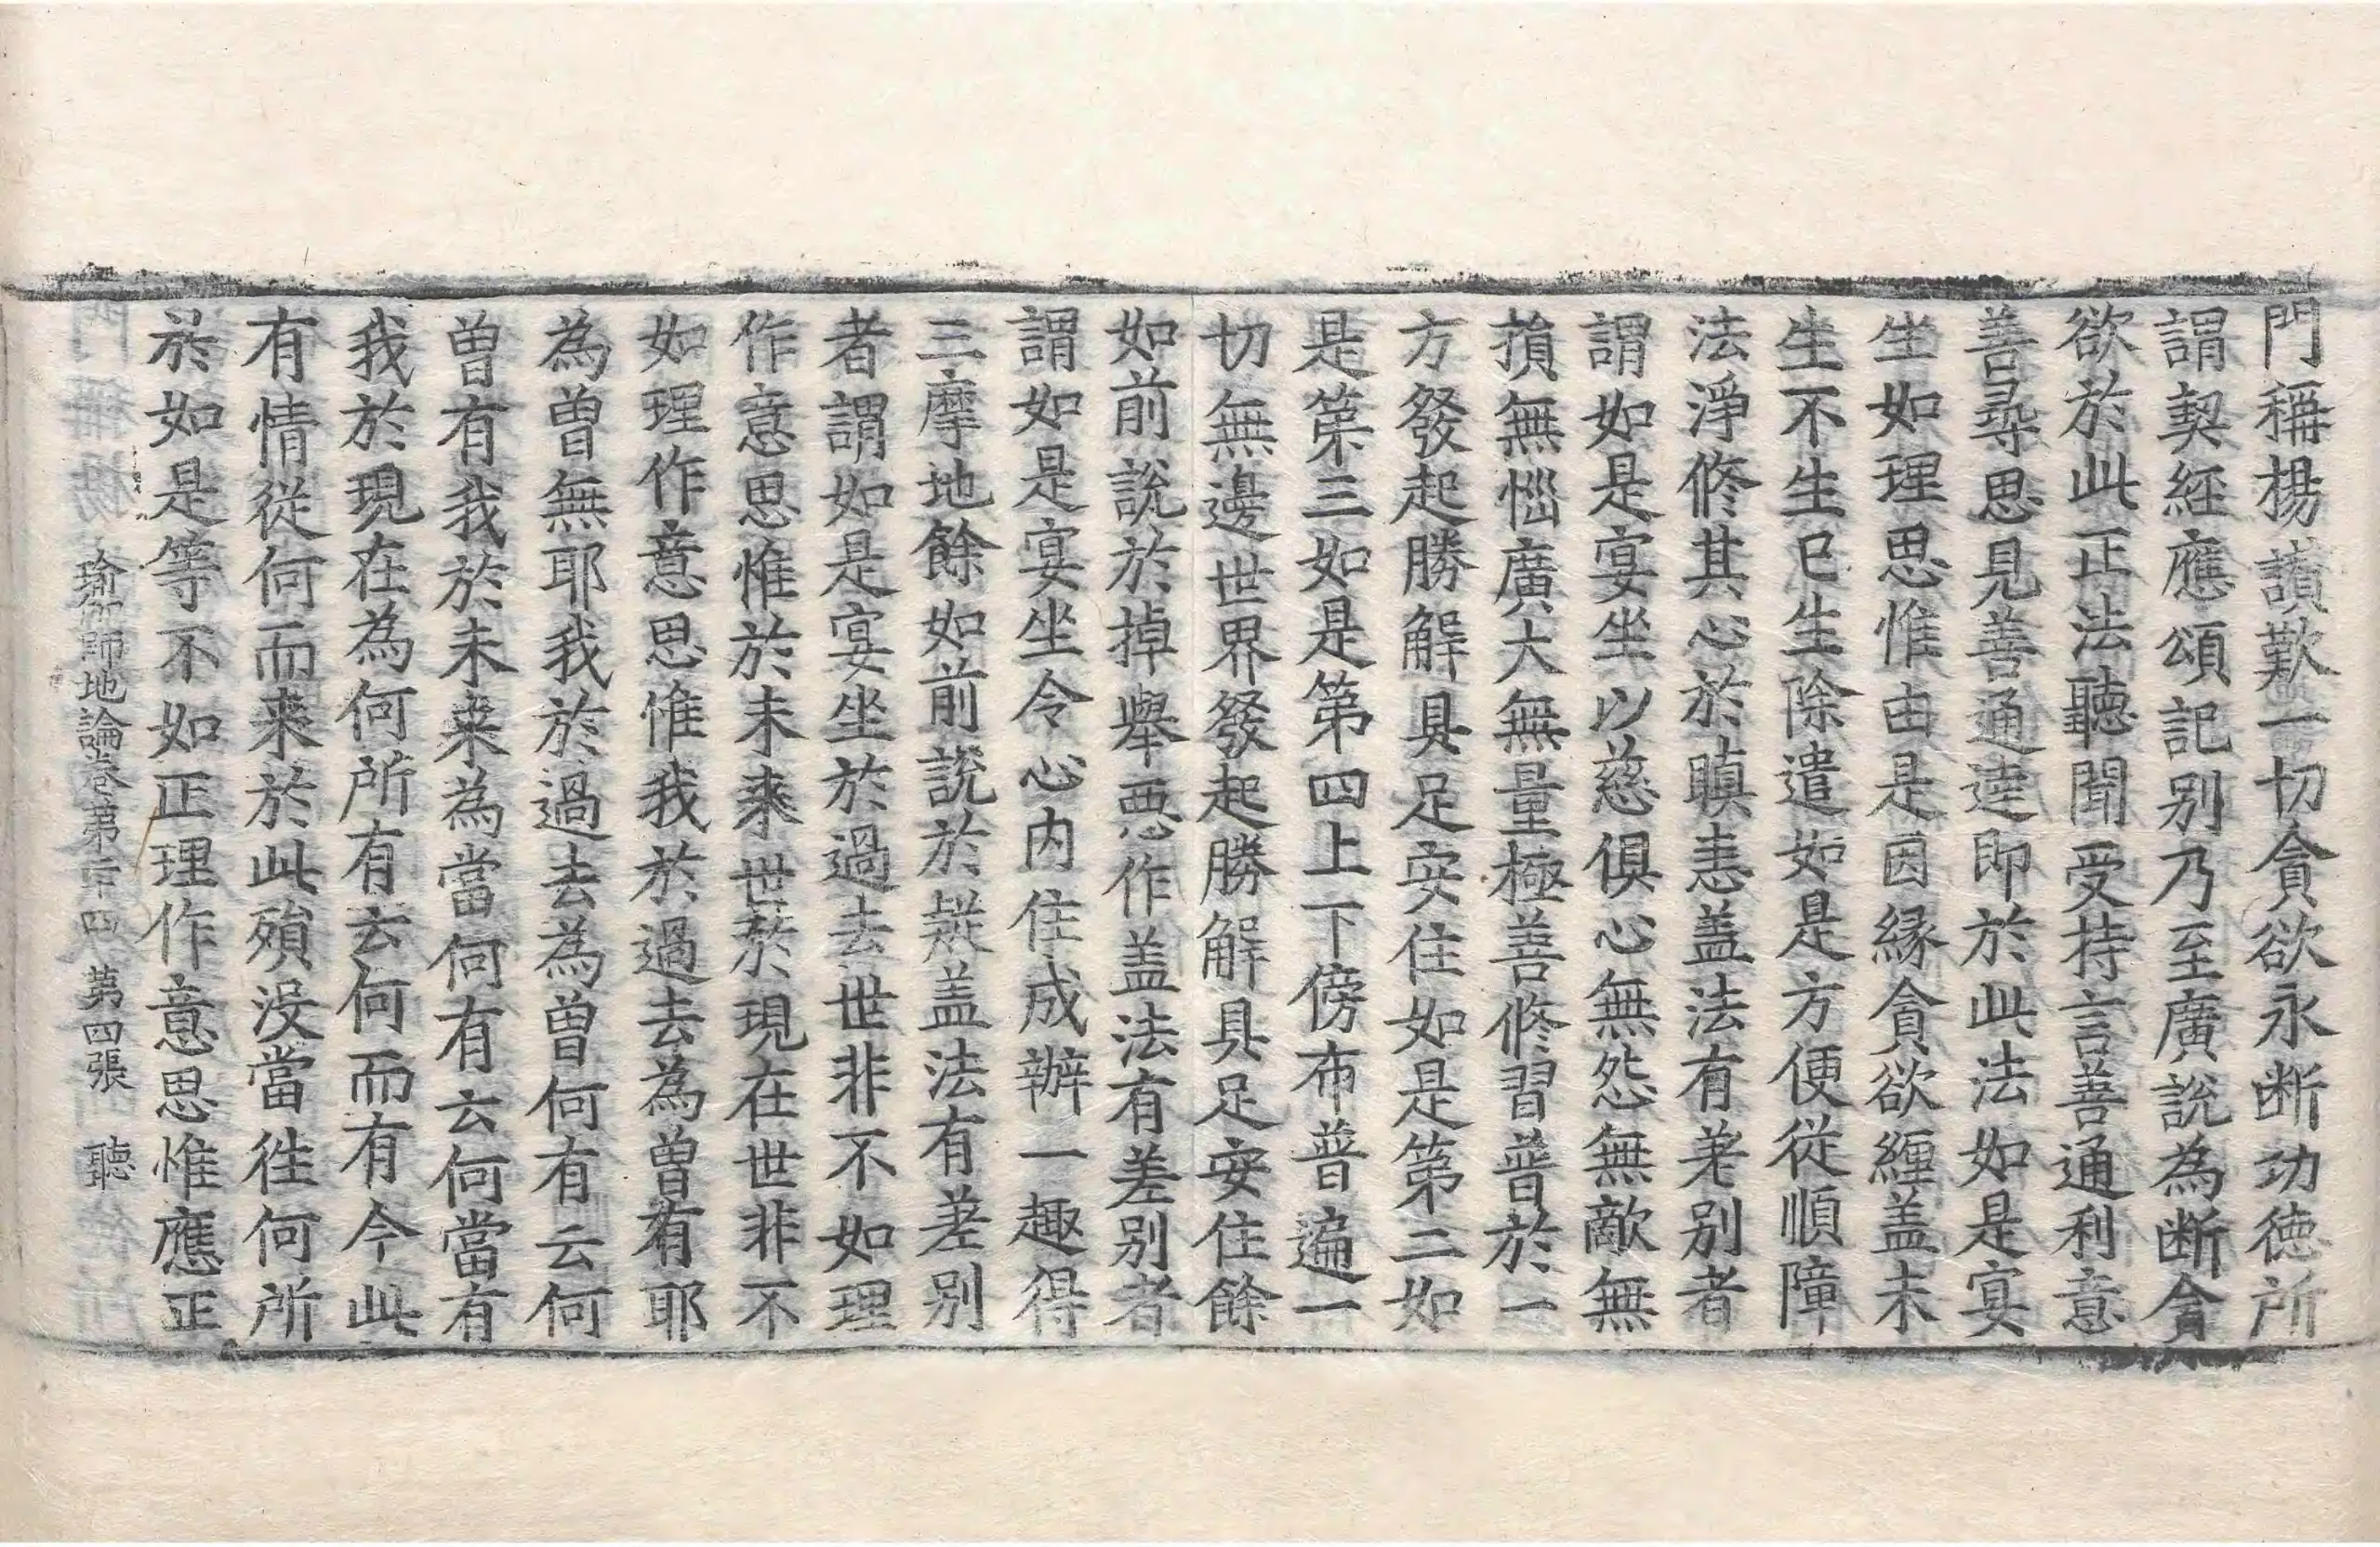 門稱揚讚歎一切貪欲永断功徳所
謂契經應頌記别乃至廣說為断貪
欲於此正法聽聞受持言善通利意
善尋思見善通達即於此法如是宴
坐如理思惟由是因縁貪欲纏盖未
生不生已生除遣如是方便從順障
法淨修其心於瞋恚盖法有差别者
謂如是宴坐以慈俱心無怨無敵無
損無惱廣大無量極善修習普於一
方發起勝解具足安住如是第二如
是第三如是第四上下傍布普遍一
切無邊世界發起勝解具足安住餘
如前說於掉舉惡作盖法有差别者
謂如是宴坐令心内住成辦一趣得
三摩地餘如前說於疑盖法有差别
者謂如是宴坐於過去世非不如理
作意思惟於未來世於現在世非不
如理作意思惟我於過去為曽有耶
為曽無耶我於過去為曽何有云何
曽有我於未來為當何有云何當有
我於現在為何所有云何而有今此
有情從何而來於此殞没當徃何所
於如是等不如正理作意思惟應正
瑜伽師地論卷第二十四 第四張 聽